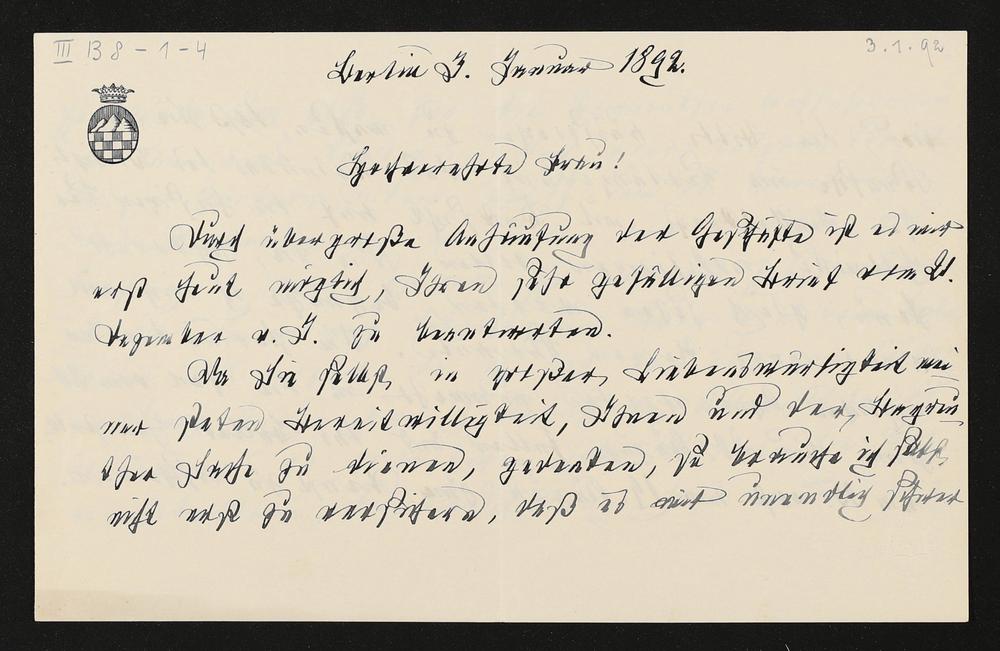 III B 8 - 1 - 4
3.1.92
Berlin 3. Januar 1892.
Hochverehrte Frau!
Durch übergroße Anhäufung der Geschäfte ist es mir
erst heut möglich, Ihren sehr gefälligen Brief vom 21.
Dezember v. J. zu beantworten.
Da Sie selbst, in großer Liebenswürdigkeit mei
ner steten Bereitwilligkeit, Ihnen und der
Sache zu dienen, gedenken, so brauche ich selbst
nicht erst zu versichern, daß es mir unendlich schwer